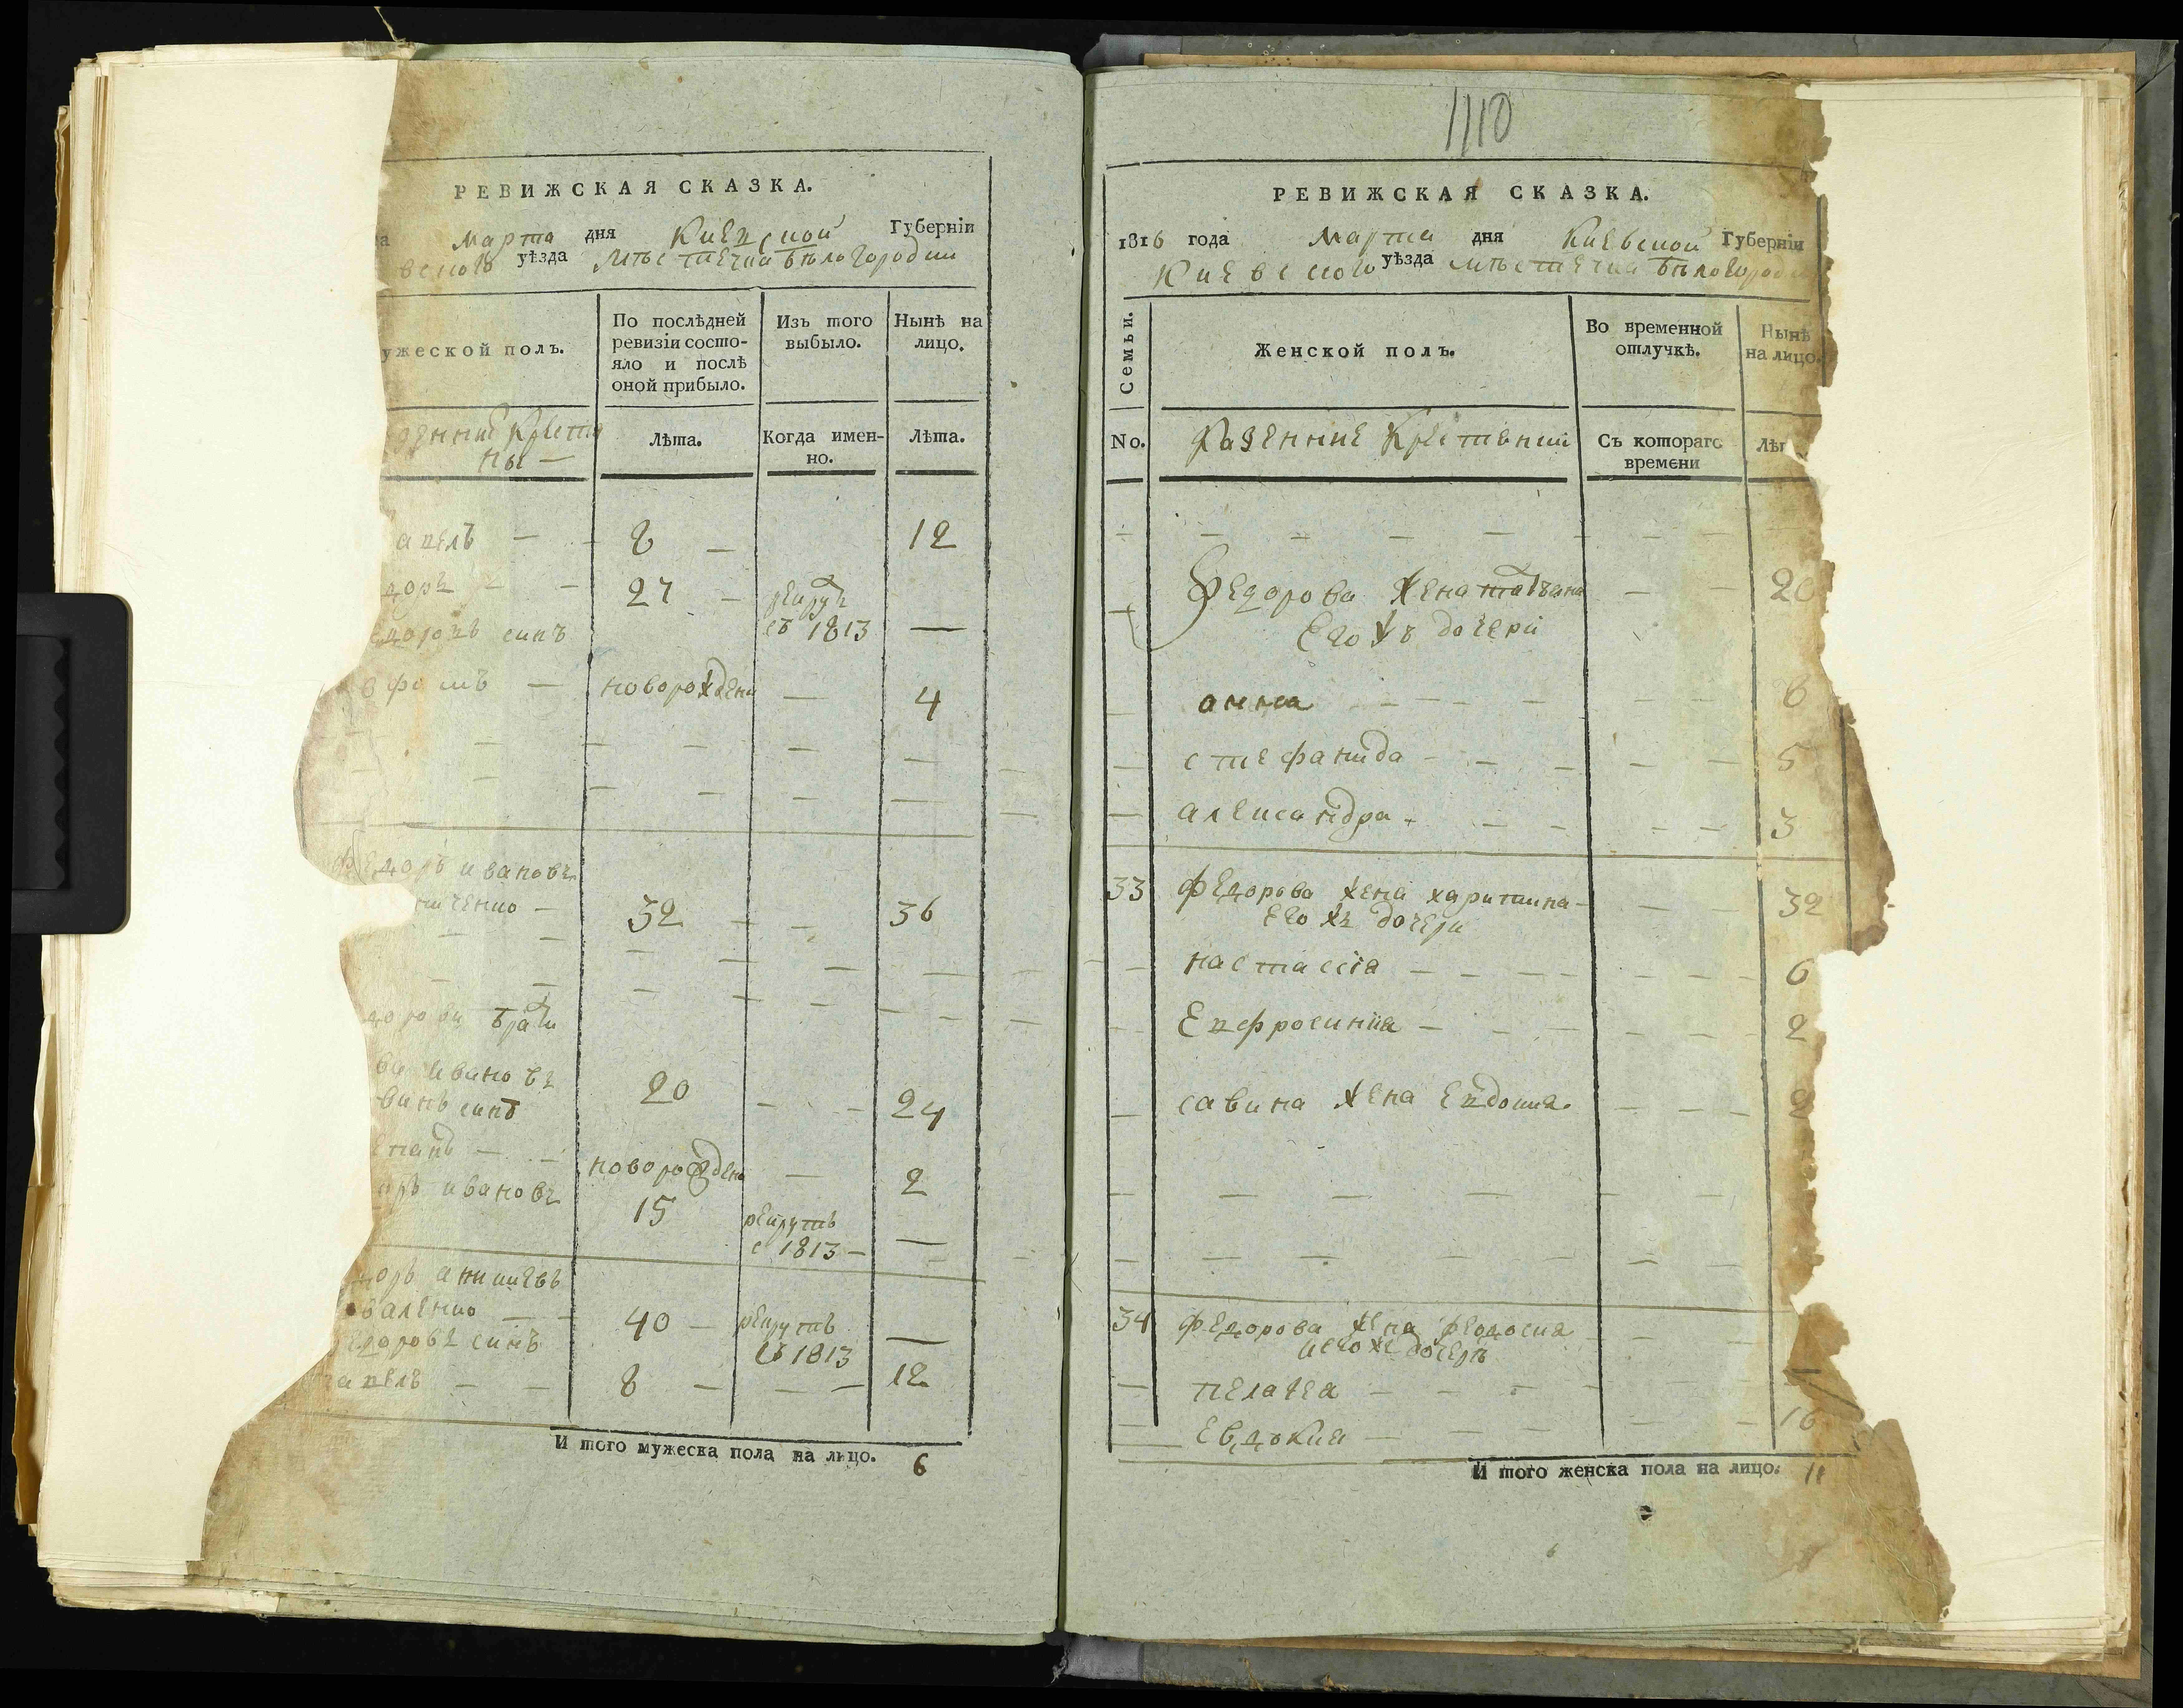 РЕВИЖСКАЯ СКАЗКА.
марта дня Киевской Губернїи
вского уѣзда мѣстечка Бѣлогородки
ужеской полъ.
По послѣдней ревизїи состо-
яло и послѣ
оной прибыло.
Изъ того
выбыло.
Нынѣ на
лицо.
зенние Крестя
ны —
Лѣта.
Когда имен-
но.
Лѣта.
авелъ — 8 — 12
доръ — 27 — рекрутъ
съ 1813 —
едоровъ синъ
офимъ — новорожденъ — 4
Федоръ ивановъ
ниченко — 32 — 36
дорови братя
ва ивановъ 20 — 24
винъ синъ
епанъ — новорожденъ — 2
оръ ивановъ 15 рекрутъ
с 1813 —
доръ аникиевъ
оваленко — 40 — рекрутъ
съ 1813 —
едоровъ синъ
авелъ — 8 — 12
И того мужеска пола на лицо. 6
1110
РЕВИЖСКАЯ СКАЗКА.
1816 года марта дня Киевской Губернїи
Киевского уѣзда мѣстечка Бѣлогородки
Семьи.
Женской полъ.
Во временной
отлучкѣ.
Нынѣ
на лицо.
No.
Казенние Крестянки
Съ котораго
времени
Лѣт
Федорова жена татіана — 26
Его жъ дочери
анна — 8
стефанида — 5
александра — 3
33 Федорова жена харитина — 32
Его жъ дочери
настасія — 6
Евфросинія — 2
савина жена Евдокия — 2
34 Федорова жена феодосия
иего же дочеръ
пелагея —
Евдокия — 16
И того женска пола на лицо. 11